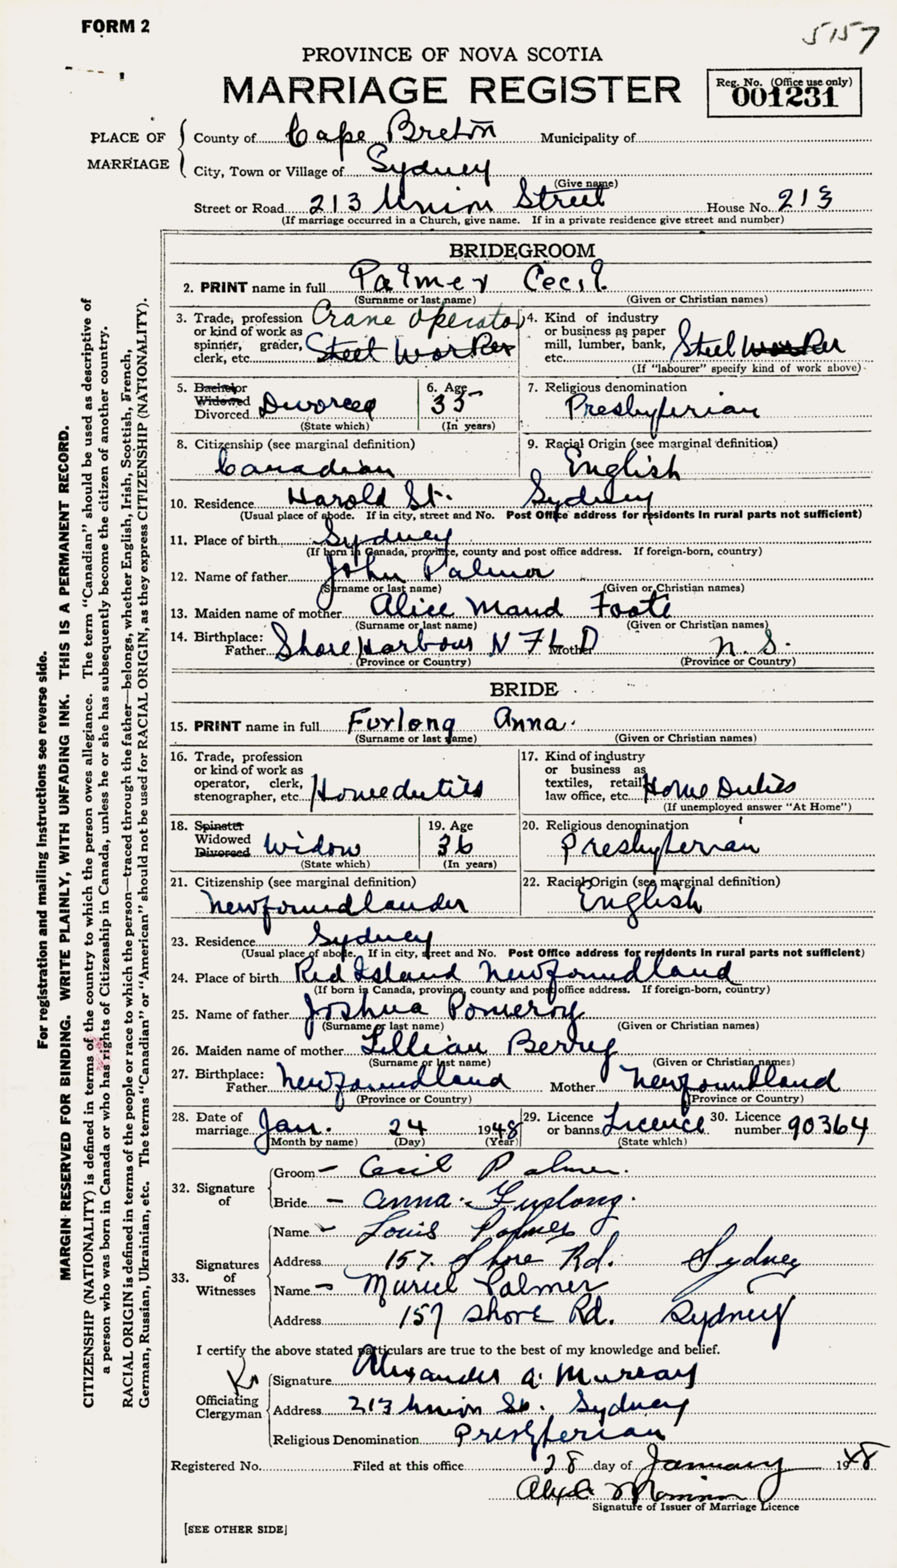 FORM 2
5157
PROVINCE OF NOVA SCOTIA
MARRIAGE REGISTER
Reg. No. (Office use only)
001231
PLACE OF MARRIAGE
County of Cape Breton Municipality of
City, Town or Village of Sydney
(Give name)
Street or Road 213 Union Street House No. 213
(If marriage occurred in a Church, give name. If in a private residence give street and number)
BRIDEGROOM
2. PRINT name in full Palmer Cecil
(Surname or last name) (Given or Christian names)
3. Trade, profession or kind of work as spinner, grader, clerk, etc. Crane operator Steel Worker
4. Kind of industry or business as paper mill, lumber, bank, etc. Steel Worker
(If "labourer" specify kind of work above)
5. Bachelor Widowed Divorced Divorced
(State which)
6. Age 35
(In years)
7. Religious denomination
Presbyterian
8. Citizenship (see marginal definition)
Canadian
9. Racial Origin (see marginal definition)
English
10. Residence Harold St. Sydney
(Usual place of abode. If in city, street and No. Post Office address for residents in rural parts not sufficient)
11. Place of birth Sydney
(If born in Canada, province, county and post office address. If foreign-born, country)
12. Name of father John Palmer
(Surname or last name) (Given or Christian names)
13. Maiden name of mother Alice Maud Foote
(Surname or last name) (Given or Christian names)
14. Birthplace: Father Shore Harbour NFLD Mother N.S.
(Province or Country) (Province or Country)
BRIDE
15. PRINT name in full Furlong Anna
(Surname or last name) (Given or Christian names)
16. Trade, profession or kind of work as operator, clerk, stenographer, etc. Homeduties
17. Kind of industry or business as textiles, retail, law office, etc. Home Duties
(If unemployed answer "At Home")
18. Spinster Widowed Divorced Widow
(State which)
19. Age 36
(In years)
20. Religious denomination
Presbyterian
21. Citizenship (see marginal definition)
Newfoundlander
22. Racial Origin (see marginal definition)
English
23. Residence Sydney
(Usual place of abode. If in city, street and No. Post Office address for residents in rural parts not sufficient)
24. Place of birth Red Island Newfoundland
(If born in Canada, province, county and post office address. If foreign-born, country)
25. Name of father Joshua Pomeroy
(Surname or last name) (Given or Christian names)
26. Maiden name of mother Lillian Berry
(Surname or last name) (Given or Christian names)
27. Birthplace: Father Newfoundland Mother Newfoundland
(Province or Country) (Province or Country)
28. Date of marriage Jan. 24 1948
(Month by name) (Day) (Year)
29. Licence or banns Licence
(State which)
30. Licence number 90364
32. Signature of
Groom – Cecil Palmer.
Bride – Anna Furlong.
33. Signatures of Witnesses
Name – Louis Palmer
Address 157 Shore Rd. Sydney
Name – Muriel Palmer
Address 157 Shore Rd. Sydney
I certify the above stated particulars are true to the best of my knowledge and belief.
Officiating Clergyman
Signature Alexander A. Murray
Address 213 Union St. Sydney
Religious Denomination Presbyterian
Registered No. Filed at this office 28 day of January 1948
Signature of Issuer of Marriage Licence
[SEE OTHER SIDE]
For registration and mailing instructions see reverse side.
MARGIN RESERVED FOR BINDING. WRITE PLAINLY, WITH UNFADING INK. THIS IS A PERMANENT RECORD.
CITIZENSHIP (NATIONALITY) is defined in terms of the country to which the person owes allegiance. The term "Canadian" should be used as descriptive of
a person who was born in Canada or who has rights of Citizenship in Canada, unless he or she has subsequently become the citizen of another country.
RACIAL ORIGIN is defined in terms of the people or race to which the person—traced through the father—belongs, whether English, Irish, Scottish, French,
German, Russian, Ukrainian, etc. The terms "Canadian" or "American" should not be used for RACIAL ORIGIN, as they express CITIZENSHIP (NATIONALITY).